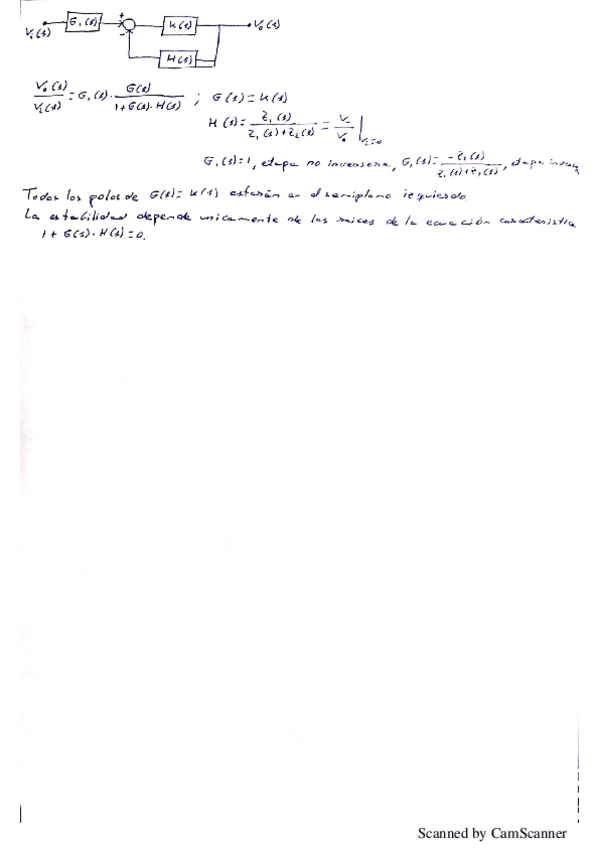 Vi(s) G1(s) + - K(s) Vo(s)
H(s)
Vo(s)/Vi(s) = G1(s) · G(s)/(1+G(s)·H(s)) ; G(s) = K(s)
H(s) = Z1(s)/(Z1(s)+Z2(s)) = V-/Vo |Vi=0
G1(s)=1, etapa no inversora, G1(s) = -Z2(s)/(Z1(s)+Z2(s)), etapa
Todos los polos de G(s)=K(s) estarán en el semiplano izquierdo.
La estabilidad depende unicamente de las raices de la ecuación caracteristica
1 + G(s)·H(s) = 0.
Scanned by CamScanner